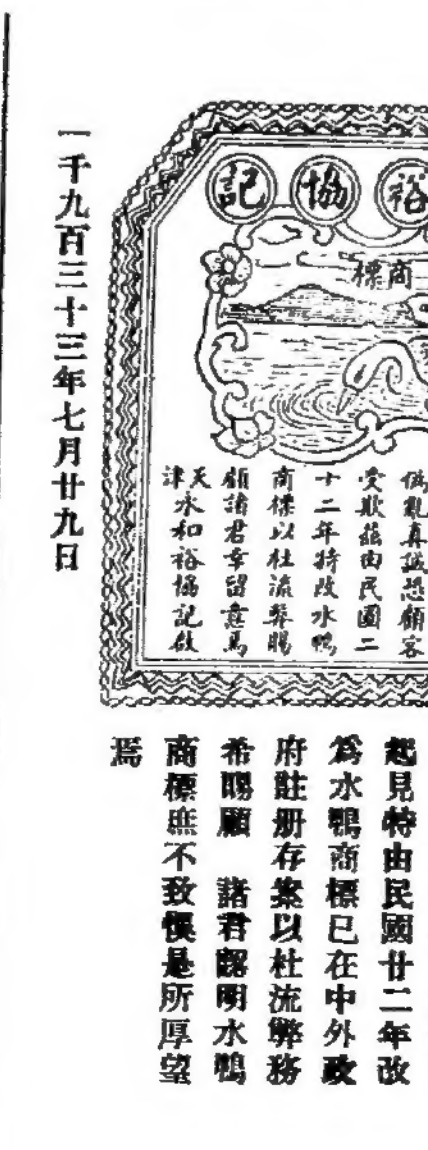 裕協記
商標
偽亂真誠恐顧客
受欺茲由民國二
十二年特改水鴨
商標以杜流弊賜
顧諸君幸留意焉
天津永和裕協記啟
起見特由民國廿二年改
爲水鴨商標已在中外政
府註册存案以杜流弊務
希賜顧　諸君認明水鴨
商標庶不致悞是所厚望
焉
一千九百三十三年七月廿九日